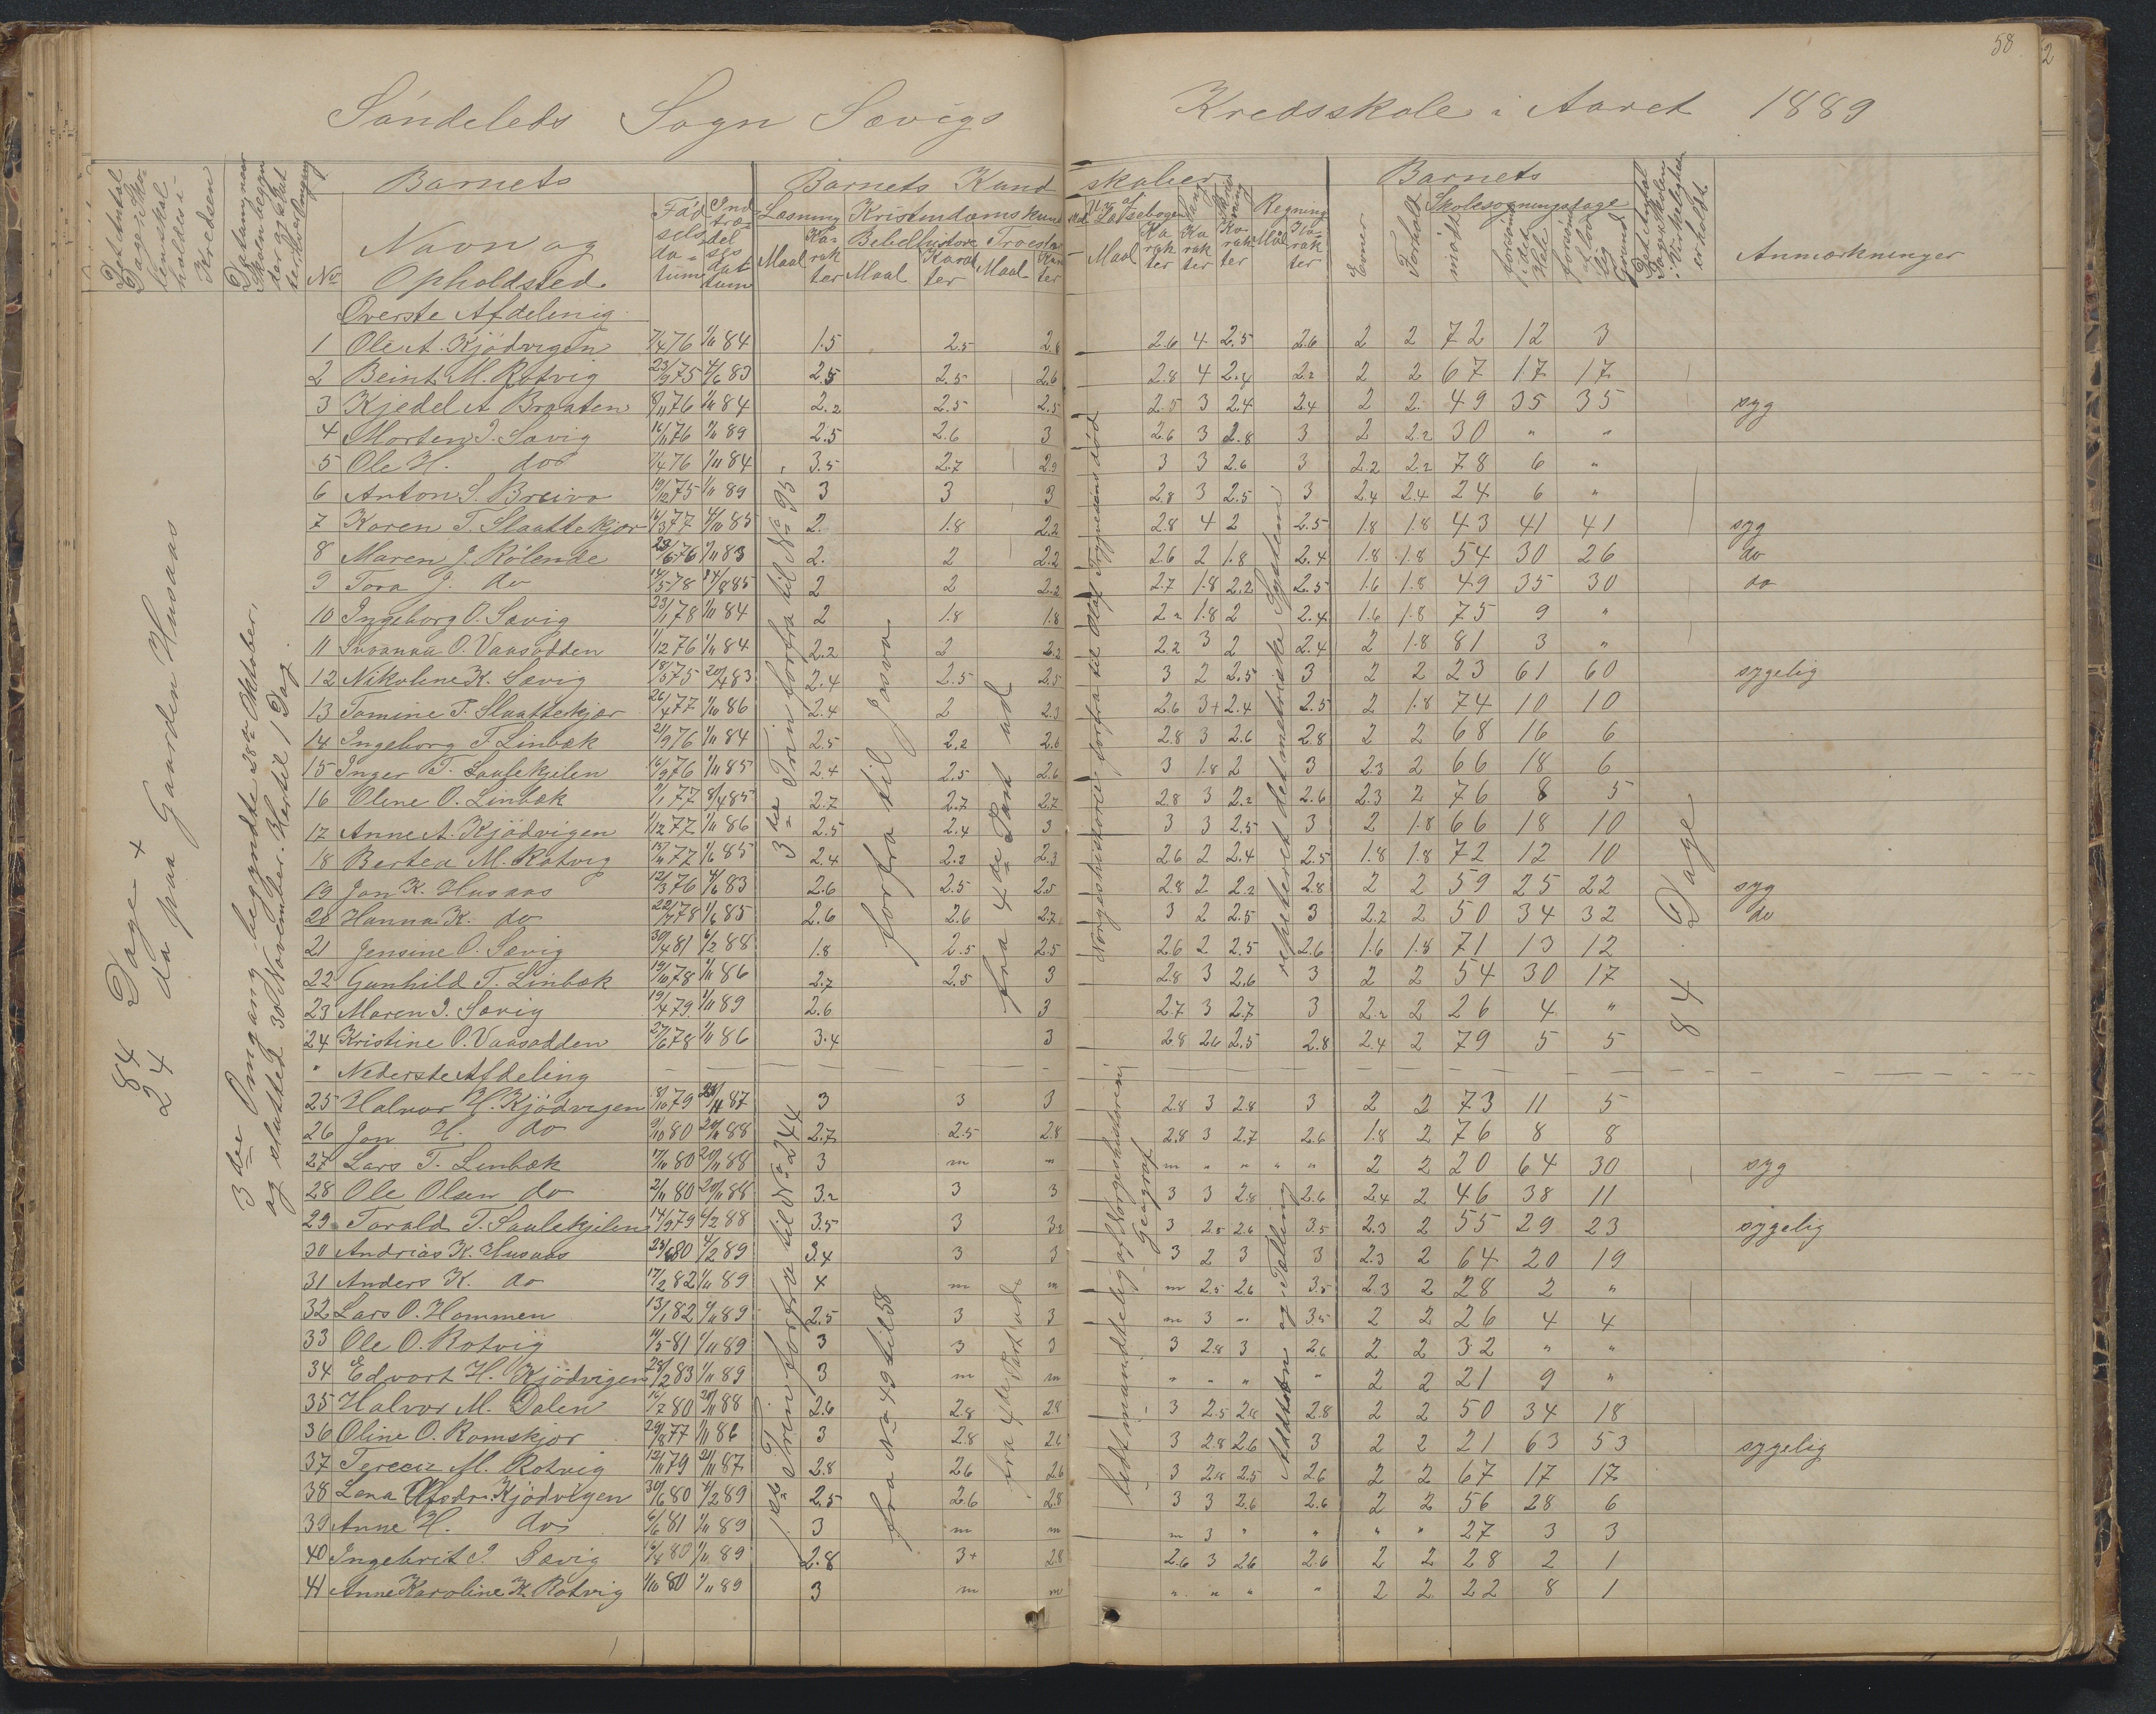 58
Söndeleds Sogn Sævigs Kredsskole i Aaret 1889
Det Antal Dage Skolen skal holdes i Kredsen
Datum, naar Skolen begynder og slutter hver Omgang
No
Barnets
Navn og Opholdssted
Födselsdatum
Indtrædelsesdatum
Barnets Kundskaber
Læsning
Maal
Karakter
Kristendomskund
Bibelhistorie
Maal
Karakter
Troeslære
Maal
Karakter
Læsebogen
Maal
Karakter
Sang
Karakter
Skrivning
Karakter
Regning
Maal
Karakter
Barnets
Evner
Forhold
Skolesøgningsdage
mødt
forsömt i det Hele
forsömt af lovlig Grund
Det Antal Dage Skolen i Virkeligheden er holdt
Anmærkninger
84 Dage +
24 do paa Gaarden Husaas
3die Omgang begyndte 28de Oktober,
og sluttet 30 November. Hertil 1 Dag.
Överste Afdelenig
1 Ole A. Kjödvigen 7/4 76 1/11 84 1.5 2.5 2.8 2.6 4 2.5 2.6 2 2 72 12 3
2 Beint M. Rotvig 23/9 75 4/6 83 2.5 2.5 2.6 2.8 4 2.4 2.2 2 2 67 17 17
3 Kjedel A Braaten 8/11 76 1/11 84 2.2 2.5 2.5 2.5 3 2.4 2.4 2 2. 49 35 35 syg
4 Morten J. Sævig 16/11 76 1/11 89 2.5 2.6 3 2.6 3 2.8 3 2 2.2 30 " "
5 Ole H. do 7/4 76 1/11 84 3.5 2.7 2.9 3 3 2.6 3 2.2 2.2 78 6 "
6 Anton S. Breivo 19/12 75 1/11 89 3 3 3 2.8 3 2.5 3 2.4 2.4 24 6 "
7 Karen T. Slaattekjær 16/3 77 4/11 85 2. 1.8 2.2 2.8 4 2 2.5 1.8 1.8 43 41 41 syg
8 Maren J. Rølende 23/6 76 1/11 83 2. 2 2.2 2.6 2 1.8 2.4 1.8 1.8 54 30 26 do
9 Tora J. do 14/5 78 24/8 85 2 2 2.2 2.7 1.8 2.2 2.5 1.6 1.8 49 35 30 do
10 Ingeborg O. Sævig 23/1 78 1/11 84 2 1.8 1.8 2.2 1.8 2 2.4 1.6 1.8 75 9 "
11 O. Vaasodden 1/12 76 1/11 84 2.2 2 2.2 2.2 3 2 2.4 2 1.8 81 3 "
12 Nikoline K. Sævig 18/5 75 20/4 83 2.4 2.5 2.5 3 2 2.5 3 2 2 23 61 60 sygelig
13 Tomine T. Slaattekjær 26/4 77 1/10 86 2.4 2 2.3 2.6 3+ 2.4 2.5 2 1.8 74 10 10
14 Ingeborg T. Linbæk 21/9 76 1/11 84 2.5 2.2 2.6 2.8 3 2.6 2.8 2 2 68 16 6
15 Inger T. Saulekjilen 16/9 76 1/11 85 2.4 2.5 2.6 3 1.8 2 3 2.3 2 66 18 6
16 Oline O. Linbæk 9/1 77 8/4 85 2.7 2.7 2.7 2.8 3 2.2 2.6 2.3 2 76 8 5
17 Anne A. Kjödvigen 1/12 77 1/11 86 2.5 2.4 3 3 3 2.5 3 2 1.8 66 18 10
18 Bertea M. Rotvig 15/11 77 1/6 85 2.4 2.2 2.3 2.6 2 2.4 2.5 1.8 1.8 72 12 10
19 Jon K. Husaas 12/3 76 4/6 83 2.6 2.5 2.5 2.8 2 2.2 2.8 2 2 59 25 22 syg
20 Hanna K. do 22/7 78 1/6 85 2.6 2.6 2.7 3 2 2.5 3 2.2 2 50 34 32 do
21 Jensine O. Sævig 30/4 81 6/2 88 1.8 2.5 2.5 2.6 2 2.5 2.6 1.6 1.8 71 13 12
22 Gunhild T. Linbæk 19/10 78 1/11 86 2.7 2.5 3 2.8 3 2.6 3 2 2 54 30 17
23 Maren J. Sævig 19/4 79 1/11 89 2.6 3 2.7 3 2.7 3 2.2 2 26 4 "
24 Kristine O. Vaasodden 27/6 78 1/11 86 3.4 3 2.8 2.6 2.5 2.8 2.4 2 79 5 5
" Nederste Afdeling
25 Halvor H. Kjödvigen 8/10 79 23/11 87 3 3 3 2.8 3 2.8 3 2 2 73 11 5
26 Jon H. do 9/10 80 20/11 88 2.7 2.5 2.8 2.8 3 2.7 2.6 1.8 2 76 8 8
27 Lars T. Linbæk 17/11 80 20/11 88 3 m " m " " " " 2 2 20 64 30 syg
28 Ole Olsen do 2/11 80 20/11 88 3.2 3 3 3 3 2.8 2.6 2.4 2 46 38 11
29 Torald T. Saulekjilen 14/9 79 6/2 88 3.5 3 3.2 3 2.8 2.6 3.5 2.3 2 55 29 23 sygelig
30 Andrias K. Husaas 23/6 80 4/2 89 3.4 3 3 3 2 3 3 2.3 2 64 20 19
31 Anders K. do 17/2 82 1/11 89 4 m m m 2.5 2.6 3.5 2.3 2 28 2 "
32 Lars O. Hommen 13/1 82 1/11 89 2.5 3 3 m 3 " 3.5 2 2 26 4 4
33 Ole O. Rotvig 14/5 81 1/11 89 3 3 3 3 2.8 3 2.6 2 2 32 " "
34 Edvart H. Kjödvigen 28/2 83 1/11 89 3 m m " " " " 2 2 21 9 "
35 Halvor M. Dalen 16/7 80 20/11 88 2.6 2.8 2.8 3 2.5 2.8 2.8 2 2 50 34 18
36 Oline O. Romskjær 29/8 77 1/11 86 3 2.8 2.6 3 2.8 2.6 3 2 2 21 63 53 sygelig
37 M. Rotvig 12/11 79 21/11 87 2.8 2.6 2.6 3 2.8 2.5 2.6 2 2 67 17 17
38 Lena Kjödvigen 30/6 80 4/2 89 2.5 2.6 2.8 3 3 2.6 2.6 2 2 56 28 6
39 Anne H. do 6/6 81 1/11 89 3 m m m 3 " " " " 27 3 3
40 Ingebrit J. Sævig 16/4 80 1/11 89 2.8 3+ 2.8 2.6 3 2.6 2.6 2 2 28 2 1
41 Anne Karoline K. Rotvig 1/10 80 1/11 89 3 m m " " " " 2 2 22 8 1
3die Trin forfra til No 95
forfra til Josva
fra 4de Part ud
Norgeshistorie forfra til Olaf Trygvesöns död
repeteret det metriske System
84 Dage
1ste Trin forfra til No 244
fra No 49 til 58
fra 4de Part ud
lidt mundtlig af Norgeshistorie
Geografi
Addition og Tælling